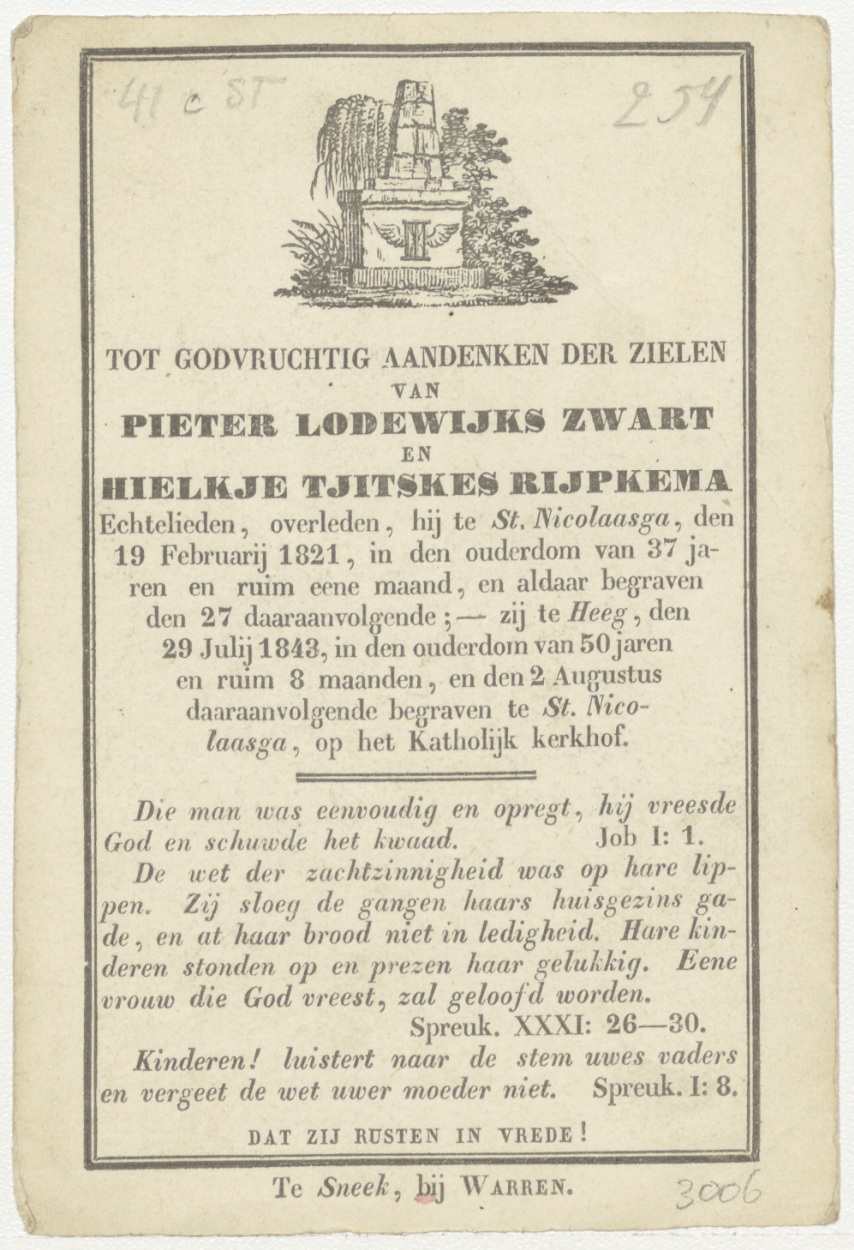 41 c ST 254
TOT GODVRUCHTIG AANDENKEN DER ZIELEN
VAN
PIETER LODEWIJKS ZWART
EN
HIELKJE TJITSKES RIJPKEMA
Echtelieden, overleden, hij te St. Nicolaasga, den
19 Februarij 1821, in den ouderdom van 37 ja-
ren en ruim eene maand, en aldaar begraven
den 27 daaraanvolgende; — zij te Heeg, den
29 Julij 1843, in den ouderdom van 50 jaren
en ruim 8 maanden, en den 2 Augustus
daaraanvolgende begraven te St. Nico-
laasga, op het Katholijk kerkhof.
Die man was eenvoudig en opregt, hij vreesde
God en schuwde het kwaad. Job I: 1.
De wet der zachtzinnigheid was op hare lip-
pen. Zij sloeg de gangen haars huisgezins ga-
de, en at haar brood niet in ledigheid. Hare kin-
deren stonden op en prezen haar gelukkig. Eene
vrouw die God vreest, zal geloofd worden.
Spreuk. XXXI: 26—30.
Kinderen! luistert naar de stem uwes vaders
en vergeet de wet uwer moeder niet. Spreuk. I: 8.
DAT ZIJ RUSTEN IN VREDE!
Te Sneek, bij WARREN.
3006